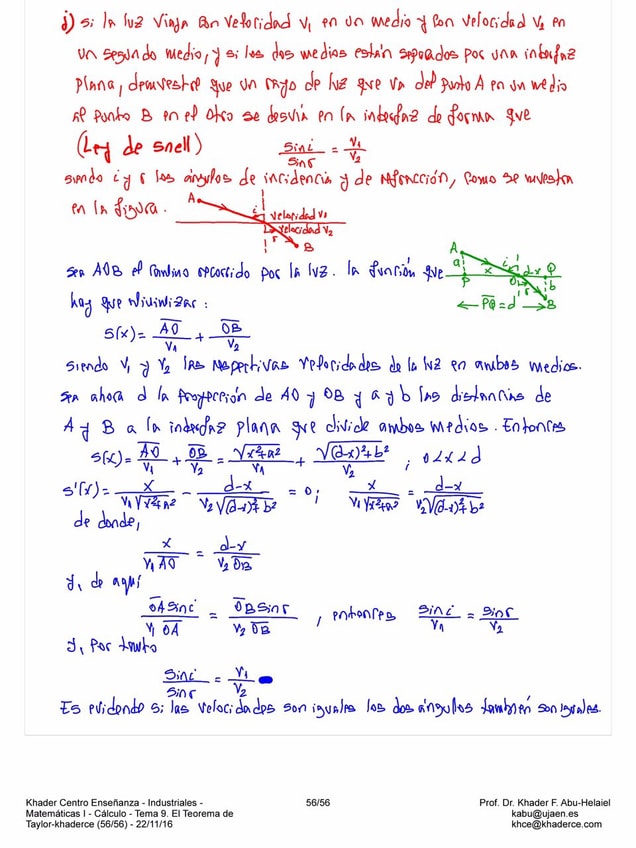 j) Si la luz viaja con velocidad v₁ en un medio y con velocidad v₂ en
un segundo medio, y si los dos medios están separados por una interfaz
plana, demuestre que un rayo de luz que va del punto A en un medio
al punto B en el otro se desvía en la interfaz de forma que
(Ley de snell) sin i / sin r = v₁ / v₂
siendo i y r los ángulos de incidencia y de refracción, como se muestra
en la figura.
A i velocidad v₁
r velocidad v₂
B
Sea AOB el camino recorrido por la luz. la función que
hay que minimizar:
A a x i d-x Q
P O r b
PQ = d B
S(x) = AO / v₁ + OB / v₂
siendo v₁ y v₂ las respectivas velocidades de la luz en ambos medios.
sea ahora d la proyección de AO y OB y a y b las distancias de
A y B a la interfaz plana que divide ambos medios. Entonces
S(x) = AO / v₁ + OB / v₂ = √(x²+a²) / v₁ + √((d-x)²+b²) / v₂ ; 0<x<d
S'(x) = x / v₁√(x²+a²) − d-x / v₂√((d-x)²+b²) = 0; x / v₁√(x²+a²) = d-x / v₂√((d-x)²+b²)
de donde,
x / v₁ AO = d-x / v₂ OB
y, de aquí
OA sin i / v₁ OA = OB sin r / v₂ OB , entonces sin i / v₁ = sin r / v₂
y, por tanto
sin i / sin r = v₁ / v₂
Es evidende si las velocidades son iguales los dos ángulos también son iguales.
Khader Centro Enseñanza - Industriales -
Matemáticas I - Cálculo - Tema 9. El Teorema de
Taylor-khaderce (56/56) - 22/11/16
56/56
Prof. Dr. Khader F. Abu-Helaiel
kabu@ujaen.es
khce@khaderce.com